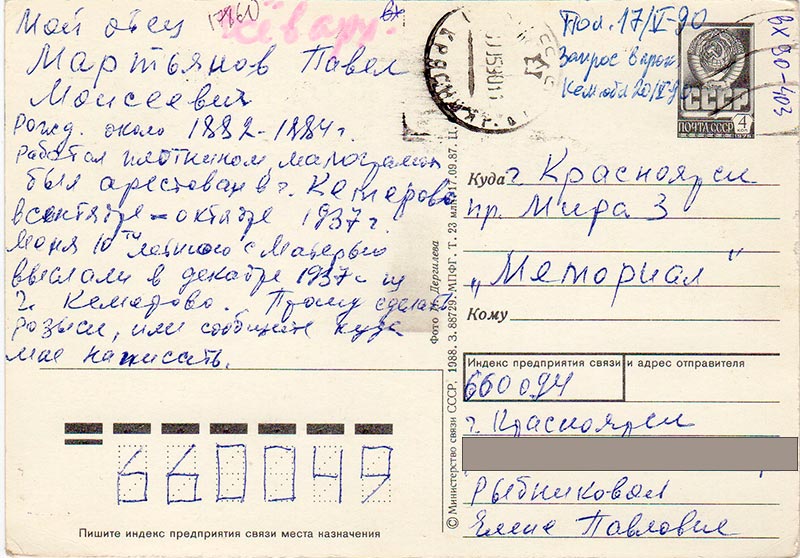 Мой отец
Мартьянов Павел
Моисеевич
Рожд. около 1882-1884 г.
Работал плотником малограмот
был арестован в г. Кемерово
в сентябре-октябре 1937 г.
Меня 10ти летнюю с матерью
выслали в декабре 1937 г из
г. Кемерово. Прошу сделать
розыск, или сообщите куда
мне написать.
Пол. 17/V-90
Запрос в прок
Кем. обл 20/V-90
вх 90-403
СССР
ПОЧТА СССР 4 коп
Куда г. Красноярск
пр. Мира 3
"Мемориал"
Кому
Индекс предприятия связи и адрес отправителя
660094
г. Красноярск
Рыбниковой
Елене Павловне
660049
Пишите индекс предприятия связи места назначения
© Министерство связи СССР, 1988. З. 88729. МПФГ. Т. 23 млн. 17.09.87. Ц.
Дергилева